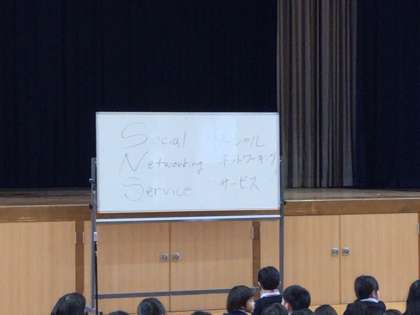 Social ソーシャル
Networking ネットワーキング
Service サービス